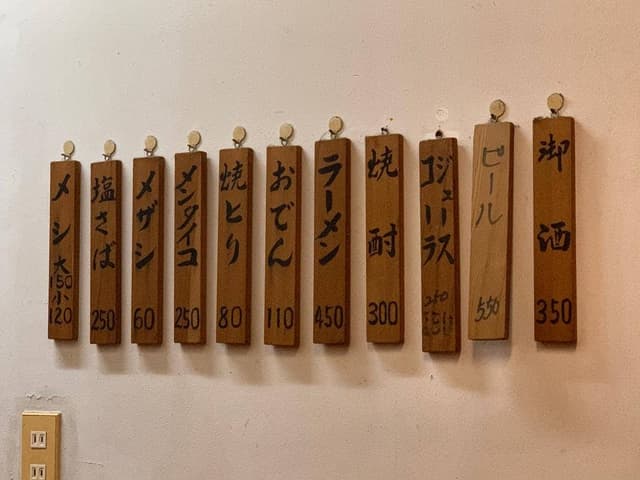 御酒 350
ビール 550
ジュース 250
焼酎 300
ラーメン 450
おでん 110
焼とり 80
メンタイコ 250
メザシ 60
塩さば 250
メシ 大 150 小 120